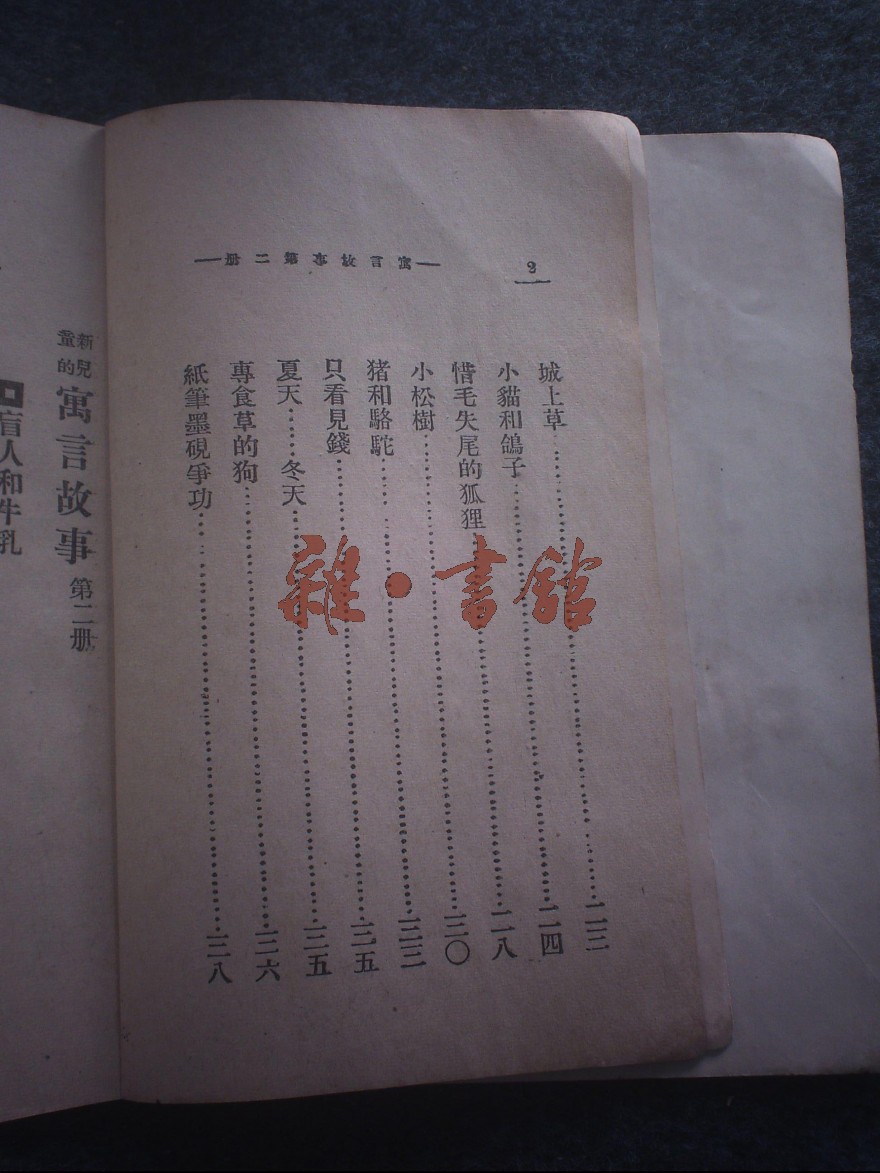 2
寓言故事第二册
城上草……二三
小貓和鴿子……二四
惜毛失尾的狐狸……二八
小松樹……三〇
猪和駱駝……三三
只看見錢……三五
夏天……冬天……三五
專食草的狗……三六
紙筆墨硯爭功……三八
雜·書館
新兒童的 寓言故事 第二册
盲人和牛乳